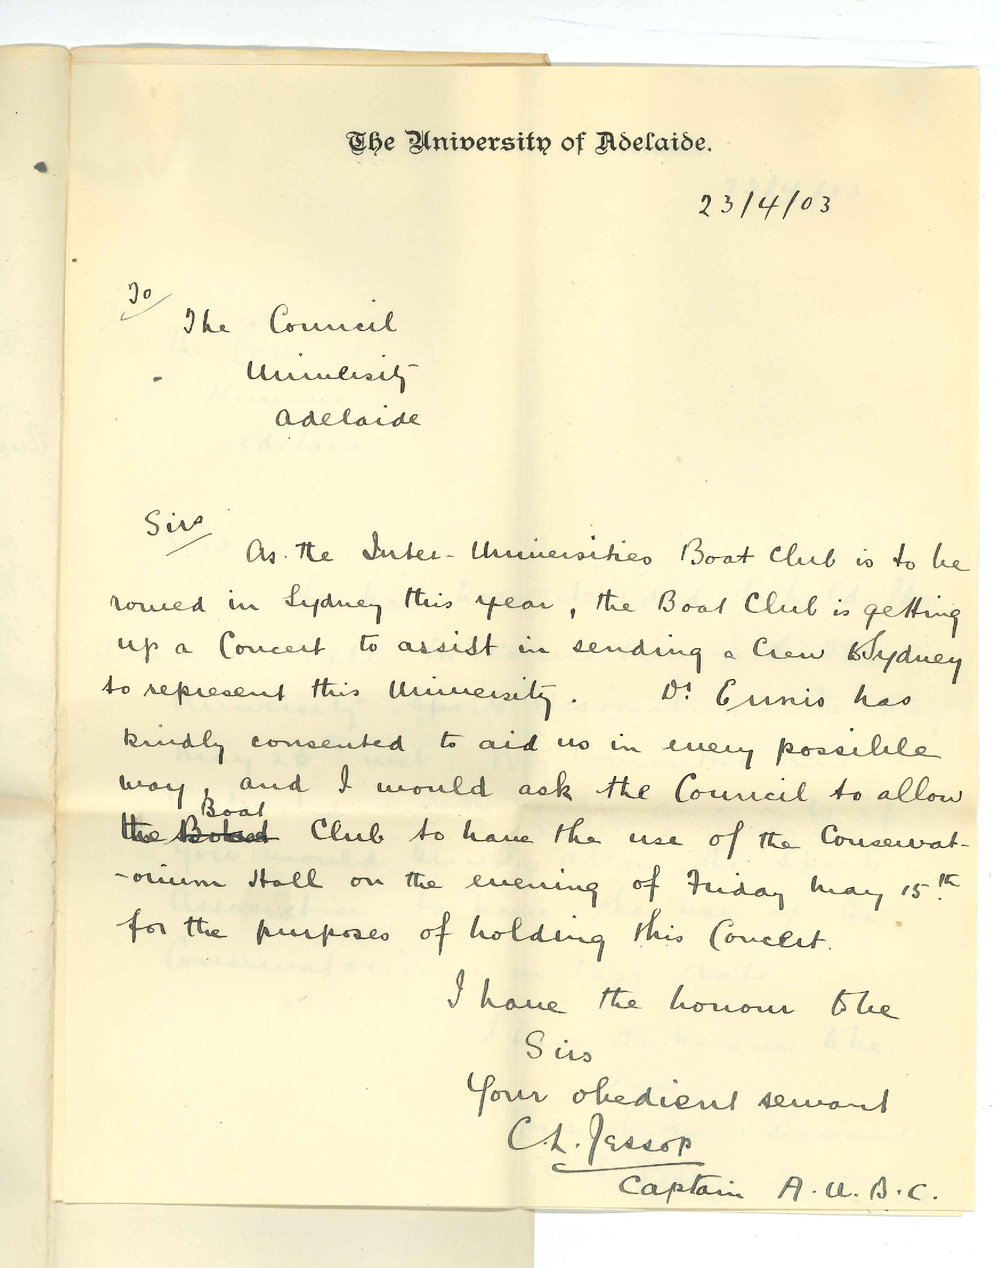 The University of Adelaide.
23/4/03
To
The Council
University
Adelaide
Sirs
As the Inter-Universities Boat Club is to be
rowed in Sydney this year, the Boat Club is getting
up a Concert to assist in sending a Crew to Sydney
to represent this University. Dr. Ennis has
kindly consented to aid us in every possible
way, and I would ask the Council to allow
Boat
the Club to have the use of the Conservat-
-orium Hall on the evening of Friday May 15th
for the purposes of holding this Concert.
I have the honour to be
Sirs
Your obedient servant
C. L. Jessop
Captain A.U.B.C.